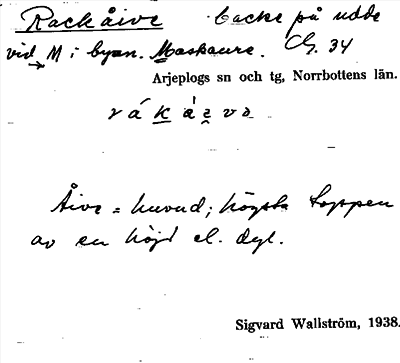 Rackåive backe på udde
vid M i byn. Maskaure. 34
Arjeplogs sn och tg, Norrbottens län.
Åive = huvud; högsta toppen
av en höjd el. dyl.
Sigvard Wallström, 1938.